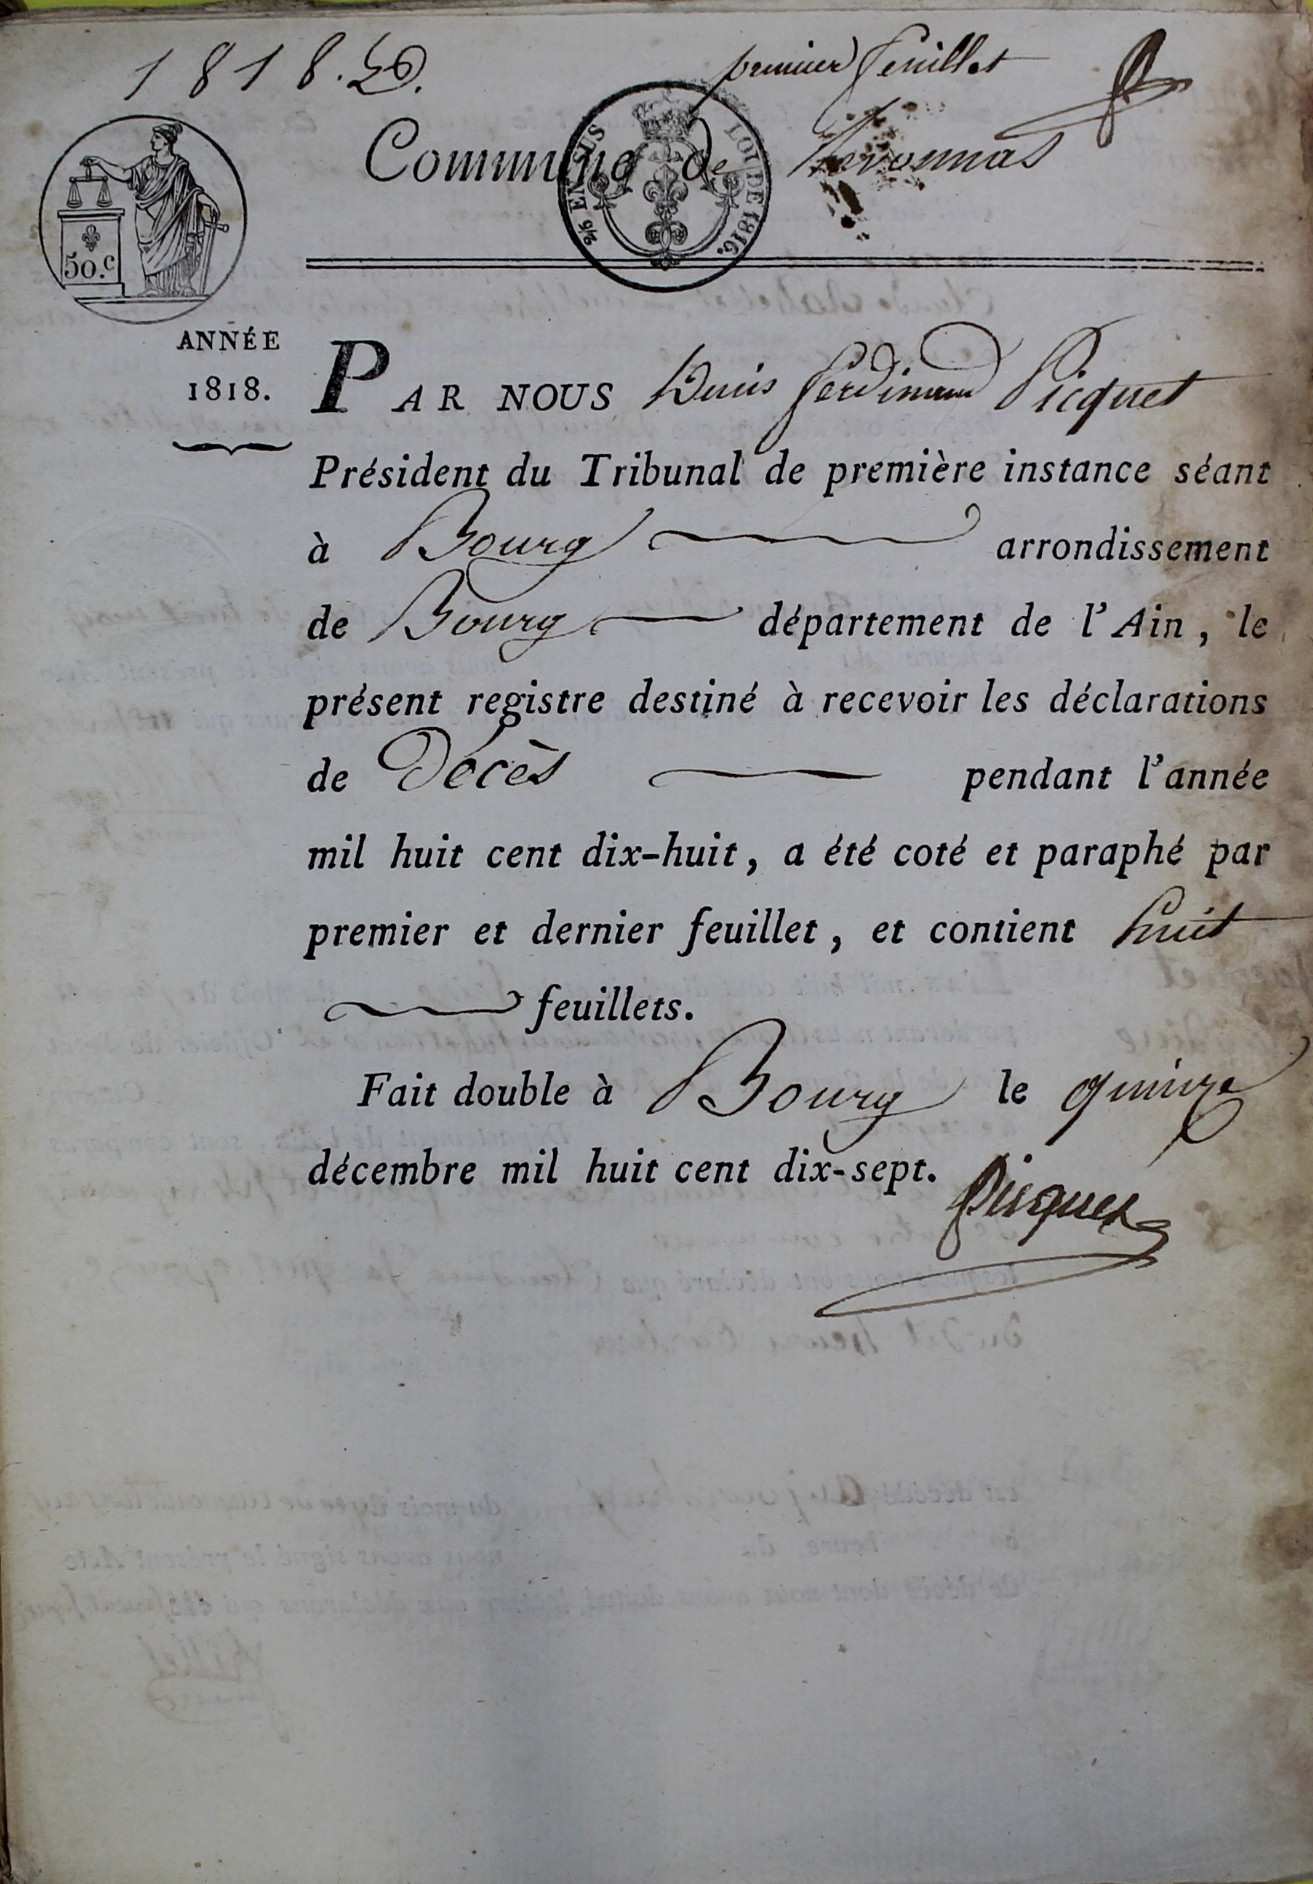 1818. D.
premier feuillet
Commune de
2/5 EN SUS LOI DE 1816.
50.c
ANNÉE
1818.
PAR NOUS Denis Ferdinand Picquet
Président du Tribunal de première instance séant
à Bourg arrondissement
de Bourg département de l'Ain, le
présent registre destiné à recevoir les déclarations
de Décès pendant l'année
mil huit cent dix-huit, a été coté et paraphé par
premier et dernier feuillet, et contient huit
feuillets.
Fait double à Bourg le quinze
décembre mil huit cent dix-sept.
Picquet